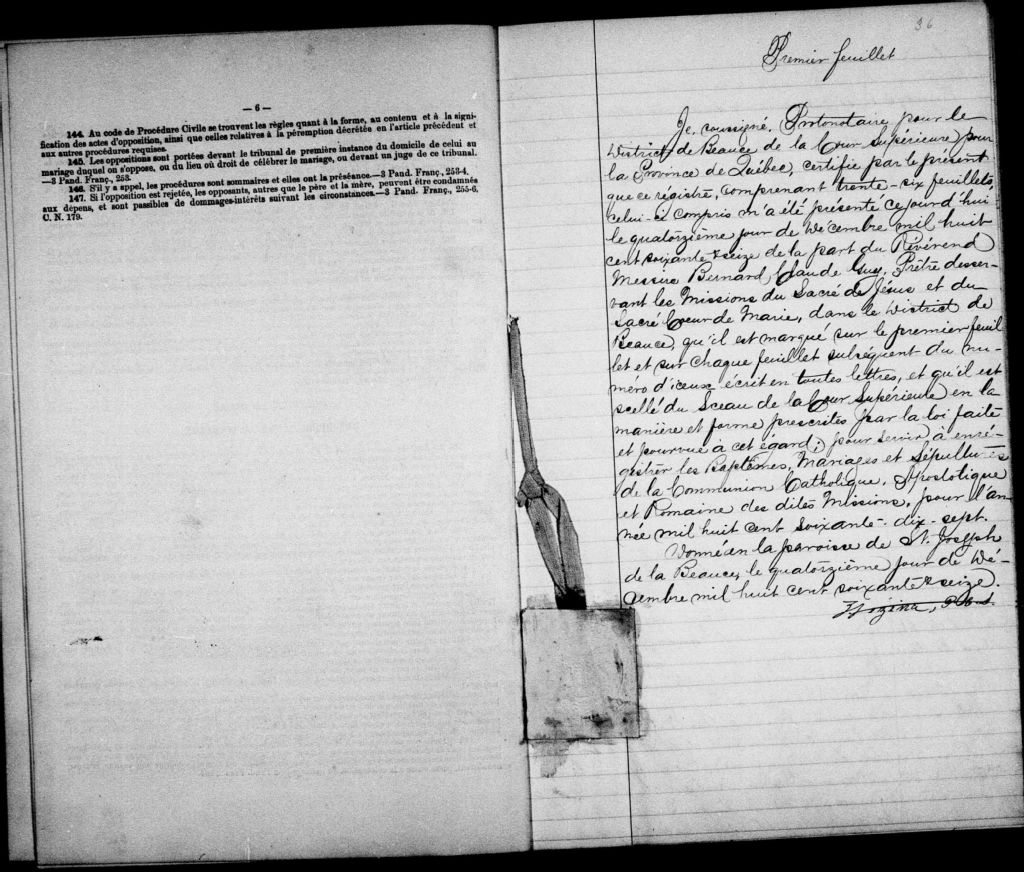 — 6 —
144. Au code de Procédure Civile se trouvent les règles quant à la forme, au contenu et à la signi-
fication des actes d'opposition, ainsi que celles relatives à la péremption décrétée en l'article précédent et
aux autres procédures requises.
145. Les oppositions sont portées devant le tribunal de première instance du domicile de celui au
mariage duquel on s'oppose, ou du lieu où droit de célébrer le mariage, ou devant un juge de ce tribunal.
—3 Pand. Franç., 253.
146. S'il y a appel, les procédures sont sommaires et elles ont la préséance.—3 Pand. Franç., 253-4.
147. Si l'opposition est rejetée, les opposants, autres que le père et la mère, peuvent être condamnés
aux dépens, et sont passibles de dommages-intérêts suivant les circonstances.—3 Pand. Franç., 255-6.
C. N. 179.
36
Premier feuillet
Je, soussigné, Protonotaire, pour le
District de Beauce de la Cour Supérieure pour
la Province de Québec, certifie par le présent
que ce régistre, comprenant trente-six feuillets,
celui-ci compris m'a été présenté ce jourd'hui
le quatorzième jour de Décembre mil huit
cent soixante & seize de la part du Révérend
Messire Bernard Claude Guy, Prêtre desser-
vant les Missions du Sacré de Jésus et du
Sacré Coeur de Marie, dans le District de
Beauce, qu'il est marqué sur le premier feuil
let et sur chaque feuillet subséquent du nu-
méro d'iceux écrit en toutes lettres, et qu'il est
scellé du Sceau de la Cour Supérieure en la
manière et forme prescrites par la loi faite
et pourvue à cet égard; pour servir à enré-
gistrer les Baptêmes, Mariages et Sépultures
de la Communion Catholique, Apostolique
et Romaine des dites Missions, pour l'an-
née mil huit cent soixante-dix-sept.
Donné en la paroisse de St. Joseph
de la Beauce, le quatorzième jour de Dé-
cembre mil huit cent soixante & seize.